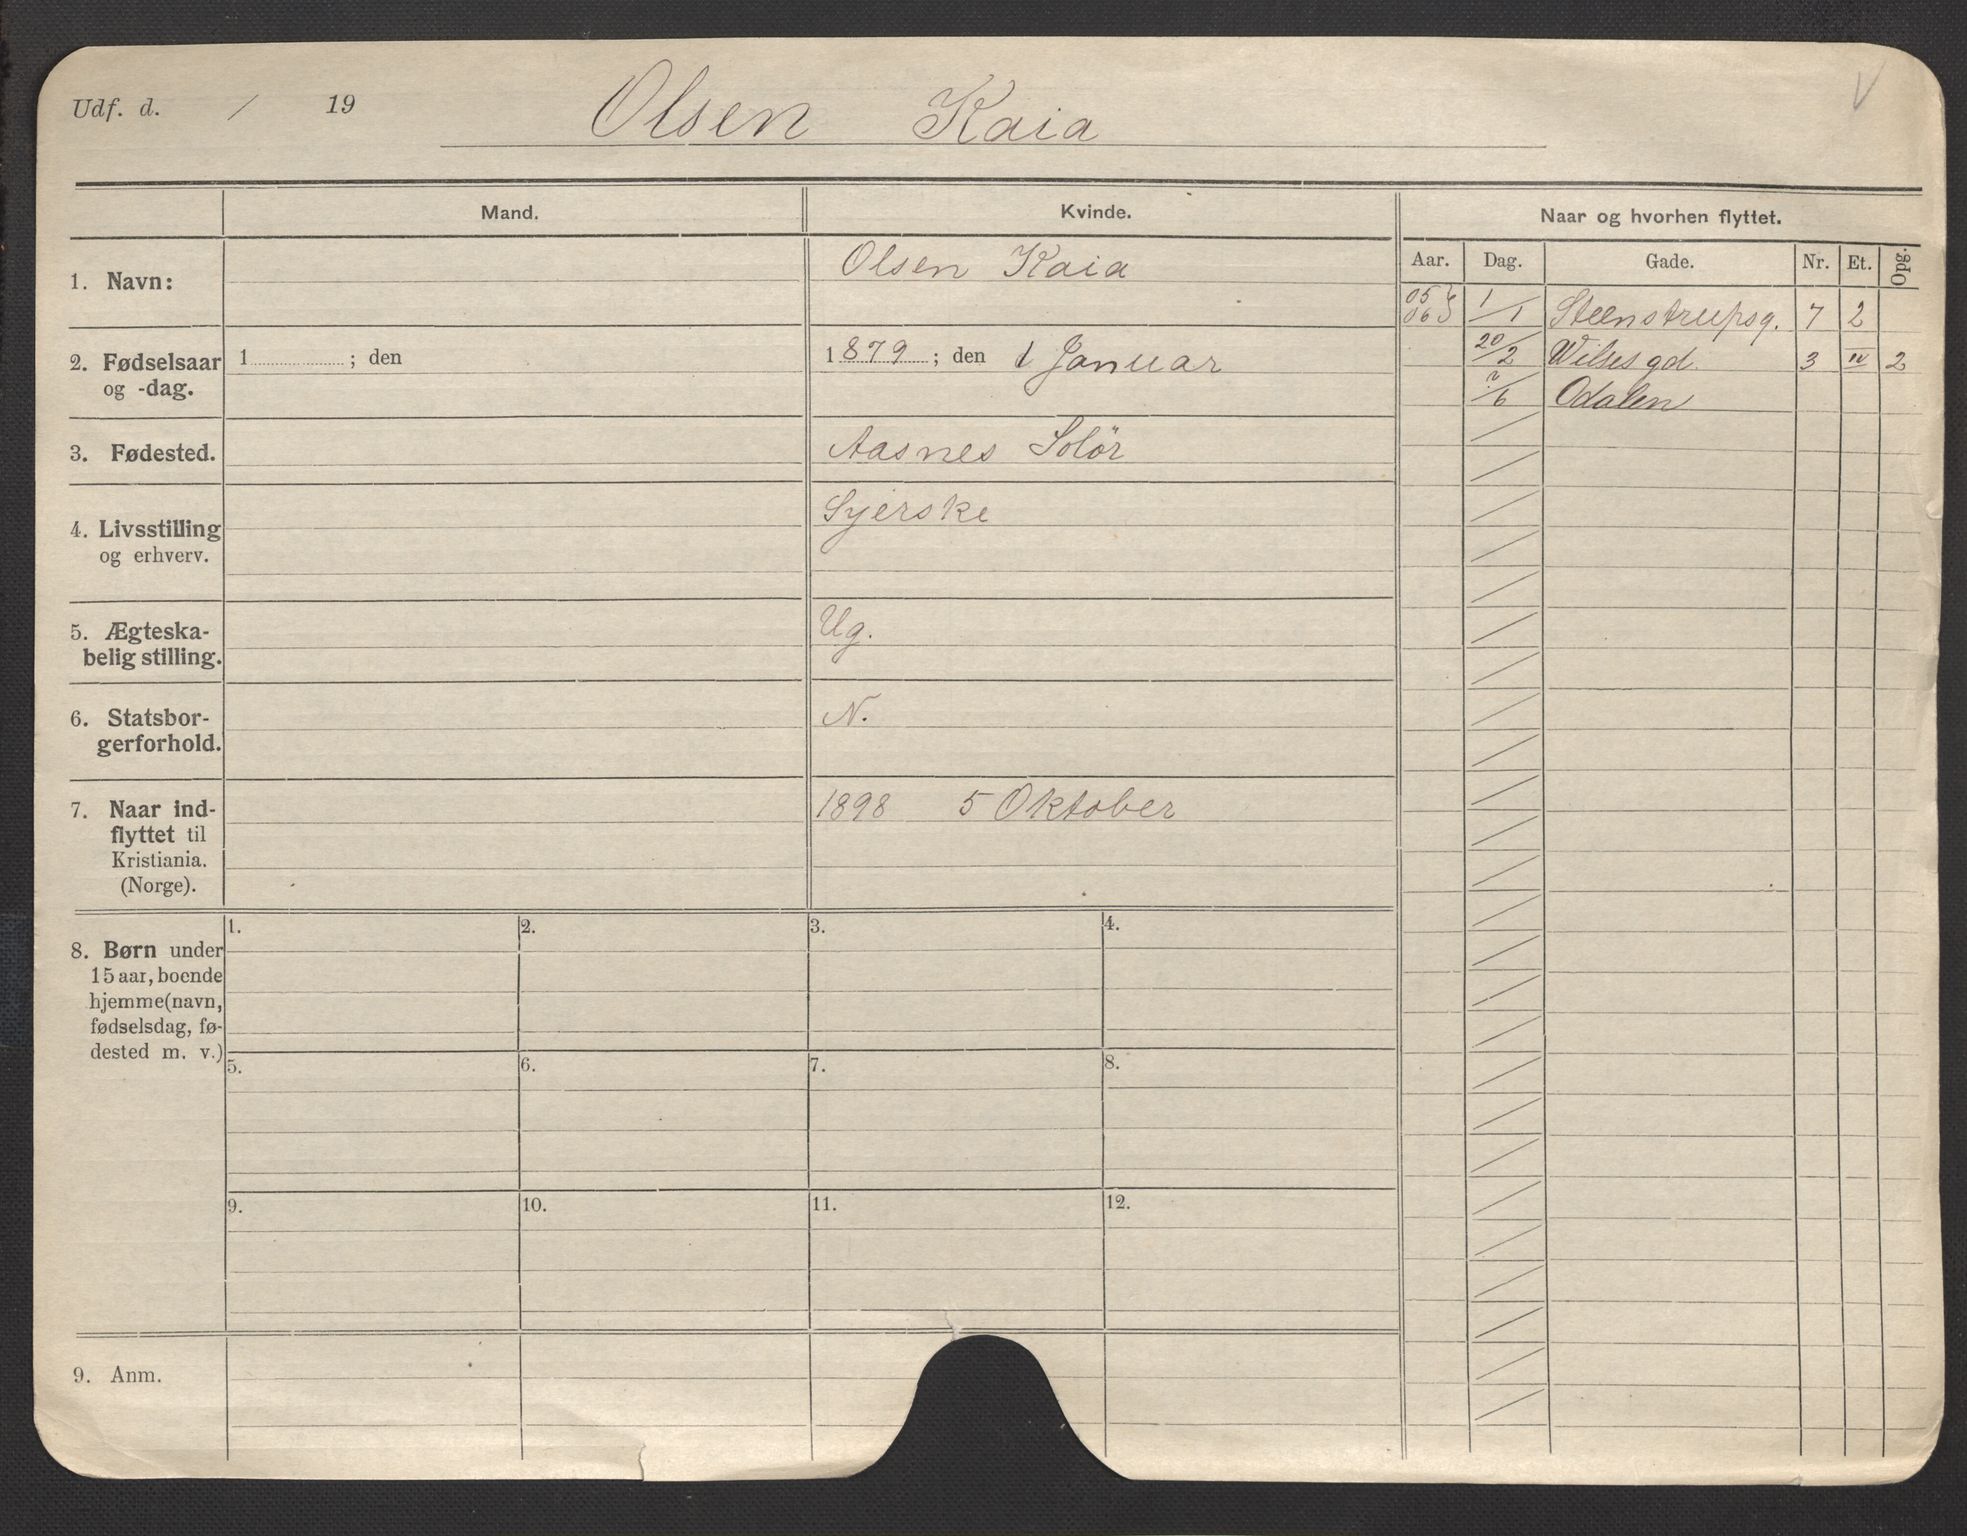 Udf. d. / 19 Olsen Kaia V
Mand. Kvinde. Naar og hvorhen flyttet.
Aar. Dag. Gade. Nr. Et. Opg.
1. Navn: Olsen Kaia
05 06 1/1 Steenstrupsg. 7 2
20/2 Wilsesgd. 3 IV 2
?/6 Odalen
2. Fødselsaar 1 ; den 1879 ; den 1 Januar
og -dag.
3. Fødested. Aasnes Solör
4. Livsstilling Syerske
og erhverv.
5. Ægteska- Ug.
belig stilling.
6. Statsbor- N.
gerforhold.
7. Naar ind- 1898 5 Oktober
flyttet til
Kristiania.
(Norge).
1. 2. 3. 4.
8. Børn under
15 aar, boende
hjemme (navn,
fødselsdag, fø-
dested m. v.)
5. 6. 7. 8.
9. 10. 11. 12.
9. Anm.